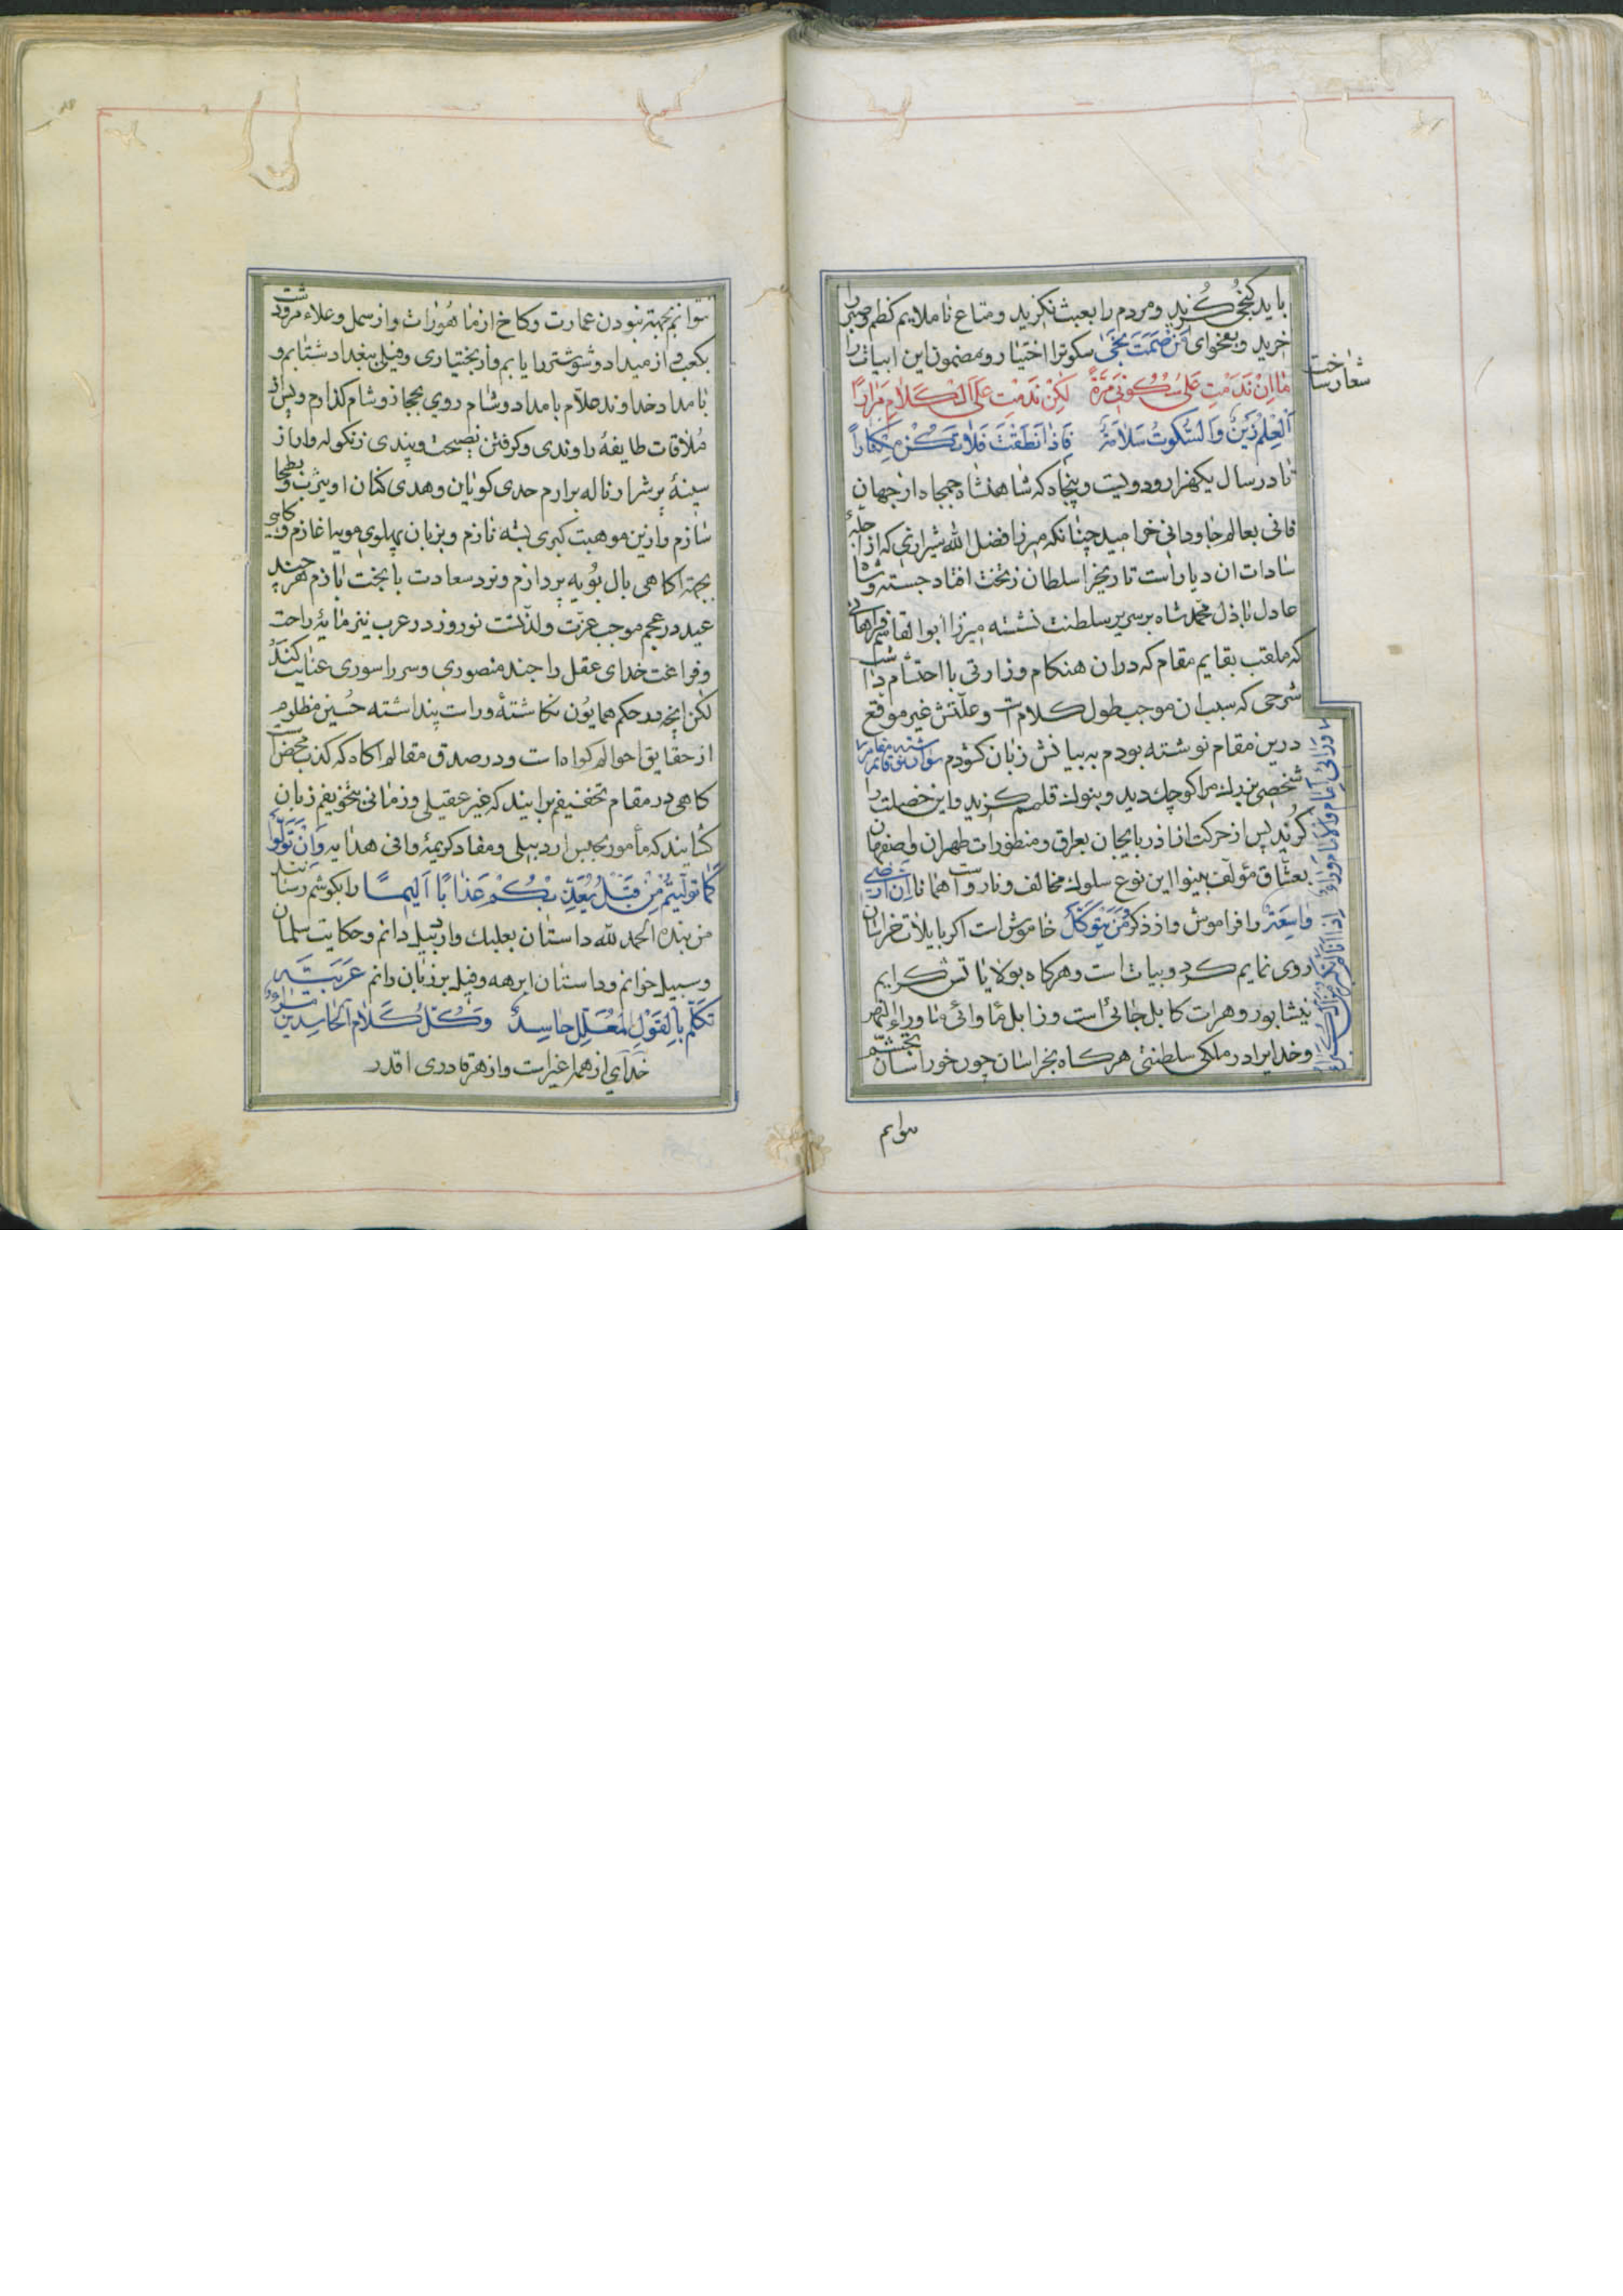 باید کنجی کزید و مردم را بعبث نکزید و متاع ناملایم کظم و صبر را
خرید و بفحوای مَن صَمَتَ نَجَی سکوترا اختیار و مضمون این ابیات را
شعار ساخت
مٰا اِنْ نَدَمْتِ عَلیٰ سُکُوتی مَرَّةً لکِنْ نَدَمْتِ عَلَی الْکَلامِ مَرٰارًا
اَلْعِلْمُ زَیْنٌ وَالسُّکُوتُ سَلاٰمَةٌ فَاِذٰا نَطَقْتَ فَلاٰ تَکُنْ مِکْثاراً
تا در سال یکهزار و دویست و پنجاه که شاهنشاه جمجاه از جهان
فانی بعالم جاودانی خرامید چنانکه میرزا فضل الله شیرازی که از اجلّهٔ
سادات ان دیار است تاریخرا سلطان ز تخت افتاد جسته و شاه
عادل باذل محمد شاه بر سریر سلطنت نشسته میرزا ابوالقاسم فراهانی
که ملقب بقایم مقام که دران هنکام وزارتی با احتشام داشت
شرحی که سبب ان موجب طول کلام است و علّتش غیر موقع
درین مقام نوشته بودم به بیانش زبان کشودم
شخصی بزرك مرا کوچك دید و بنوك قلمم کزید و این خصلت را
کزید پس از حرکت از اذربایجان بعراق و منظورات طهران و اصفهان
بعشاق مؤلف بینوا این نوع سلوك مخالف و نارواست همانا اِنَّ اَرْضی
وٰاسِعَةٌ را فراموش و از ذکر وَمَنْ یَتَوَکَّلْ خاموش است اکر بایلات خراسان
روی نمایم کرد و بیات است و هرکاه بولایاتش کرایم
نیشابور و هرات کابل جائی است و زابل مأوائی ماوراء النهر
و خدایرا در ملکی سلطنتی هرکاه بخراسان چون خور اسان
توانم بجهة نبودن عمارت و کاخ از ماهورات و از سهل و علاء مرودشت
بکعب و از میداد و شوشتر را یابم و از بختیاری و فیلی ببغداد شتابم و
بامداد خداوند علاّم بامداد و شام روی بحجاز و شام کذارم و پس از
مُلاقات طایفهٔ راوندی و کرفتن نصیحت و پندی زنکوله وار از
سینهٔ پر شرار ناله برارم حدی کویان و هدی کنان او یثرب و بطحا
سازم و ازین موهبت کبری بسته نازم و بزبان پهلوی مویها غازم و کاهی
بجهة اکاهی بال بُویه پردازم و نرد سعادت با بخت بازم هر چند
عید در عجم موجب عزّت و لذّتست نوروز در عرب نیز مایهٔ راحت
و فراغت خدای عقل را جند منصوری و سر را سوری عنایت کند
لکن انچه در حکم همایون نکاشتهٔ و راست پنداشته حُسین مظلوم
از حقایق احوالم کواه است و در صدق مقالم اکاه که کذب محض است
کاهی در مقام تخفیفم برایند که غیر عقیلی و زمانی بتخویفم زبان
کشایند که مأمور بحبس اردبیلی و مفاد کریمهٔ وافی هدایه وَاِنْ تَتَوَلَّوْا
کَمٰا تَوَلَّیْتُمْ مِنْ قَبْلُ یُعَذِّبْکُمْ عَذٰابًا اَلِیمًا را بکوشم رسانند
من بنده الحمد لله داستان بعلبك و اردبیل دانم و حکایت سلمان
و سبیل خوانم و داستان ابرهه و فیل بر زبان رانم عَرَبیَّة
تَکَلَّمَ بِالْقَوْلِ الْمُعَلَّلِ حاسِدٌ وَکُلُّ کَلامِ الْحاسِدینَ
خدای از همه اغیر است و از هر قادری اقدر